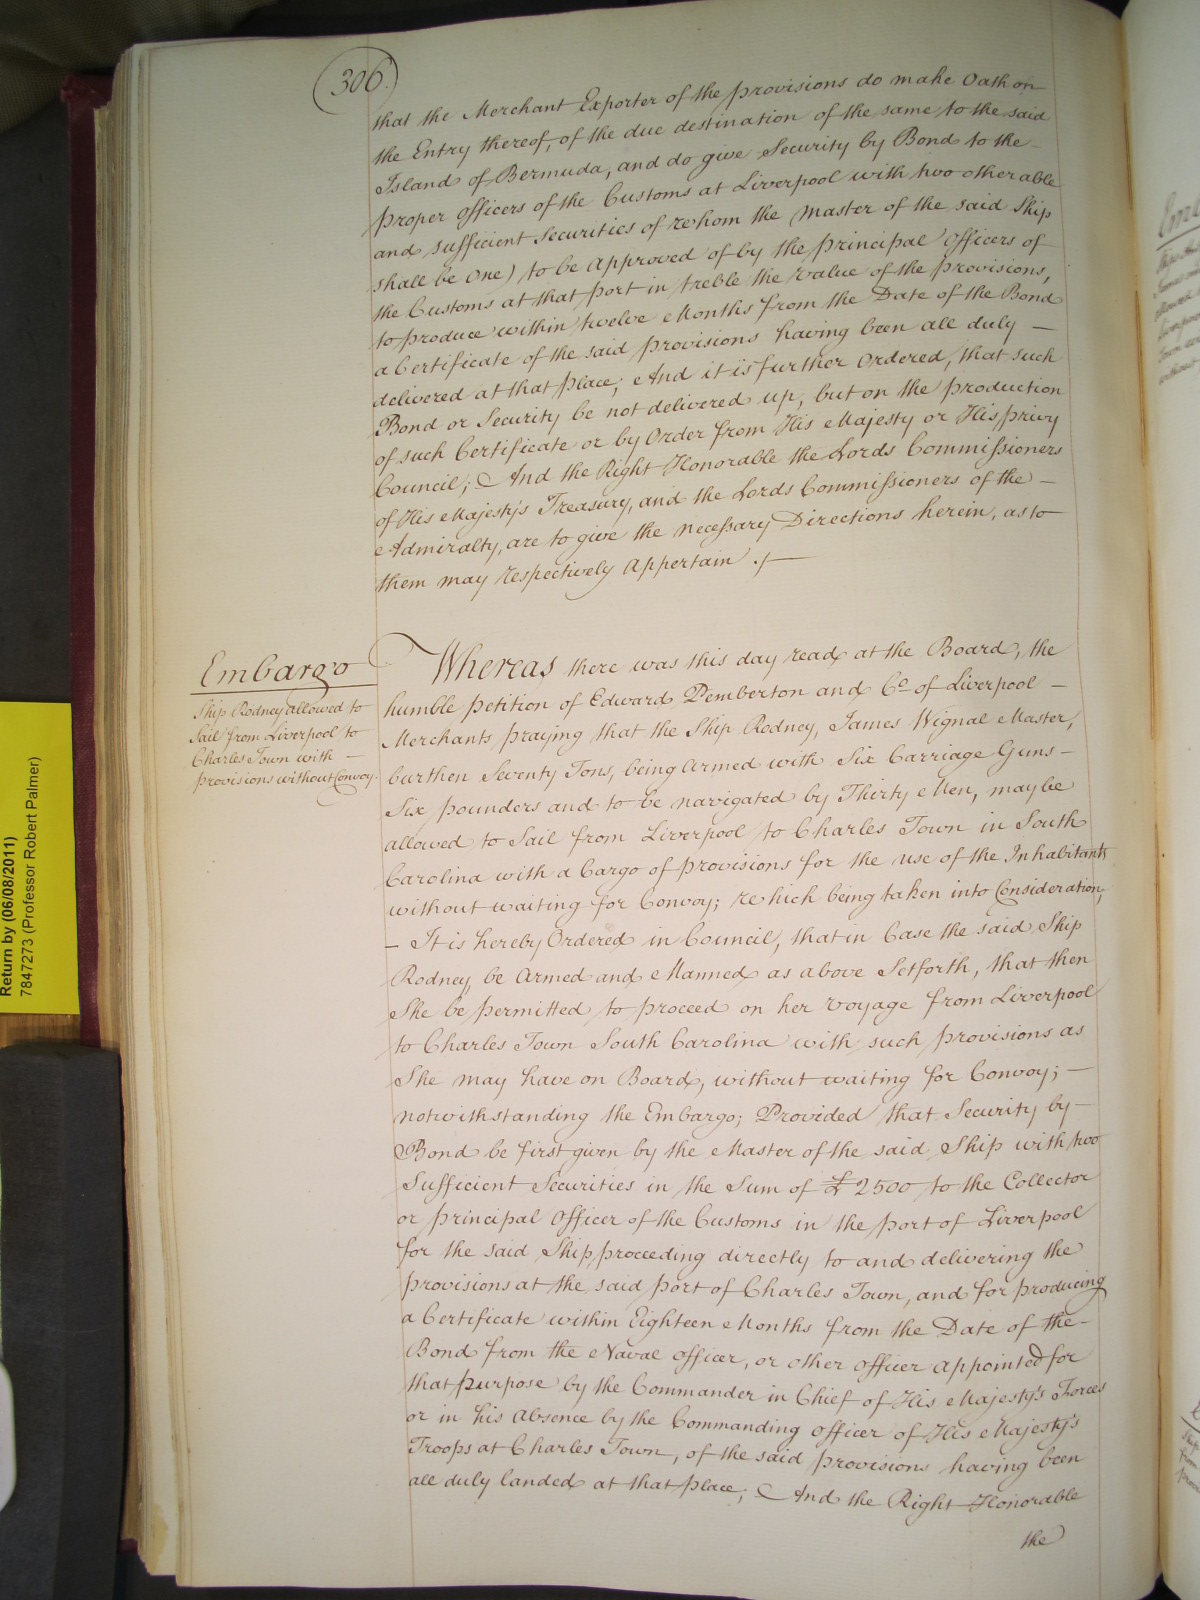 306
that the Merchant Exporter of the provisions do make Oath on
the Entry thereof, of the due destination of the same to the said
Island of Bermuda, and do give Security by Bond to the
proper Officers of the Customs at Liverpool with two other able
and sufficient Securities of whom the Master of the said Ship
shall be One) to be Approved of by the principal Officers of
the Customs at that port in treble the value of the provisions,
to produce within twelve Months from the Date of the Bond
a Certificate of the said provisions having been all duly —
delivered at that place; And it is further Ordered, that such
Bond or Security be not delivered up, but on the production
of such Certificate or by Order from His Majesty or His privy
Council; And the Right Honorable the Lords Commissioners
of His Majesty's Treasury, and the Lords Commissioners of the —
Admiralty, are to give the necessary Directions herein, as to
them may respectively Appertain.
Embargo
Ship Rodney allowed to
Sail from Liverpool to
Charles Town with —
provisions without Convoy.
Whereas there was this day read at the Board, the
humble petition of Edward Pemberton and Co. of Liverpool —
Merchants praying that the Ship Rodney, James Wignal Master,
burthen Seventy Tons, being armed with Six Carriage Guns —
Six pounders and to be navigated by Thirty Men, may be
allowed to Sail from Liverpool to Charles Town in South
Carolina with a Cargo of provisions for the use of the Inhabitants
without waiting for Convoy; which being taken into Consideration,
— It is hereby Ordered in Council, that in Case the said Ship
Rodney be Armed and Manned as above Setforth, that then
She be permitted to proceed on her voyage from Liverpool
to Charles Town South Carolina with such provisions as
She may have on Board, without waiting for Convoy; —
notwithstanding the Embargo; Provided that Security by —
Bond be first given by the Master of the said Ship with two
Sufficient Securities in the Sum of £2500 to the Collector
or principal Officer of the Customs in the port of Liverpool
for the said Ship proceeding directly to and delivering the
provisions at the said port of Charles Town, and for producing
a Certificate within Eighteen Months from the Date of the —
Bond from the Naval Officer, or other Officer appointed for
that purpose by the Commander in Chief of His Majesty's Forces
or in his Absence by the Commanding Officer of His Majesty's
Troops at Charles Town, of the said provisions having been
all duly landed at that place; And the Right Honorable
the
Return by (06/08/2011)
7847273 (Professor Robert Palmer)